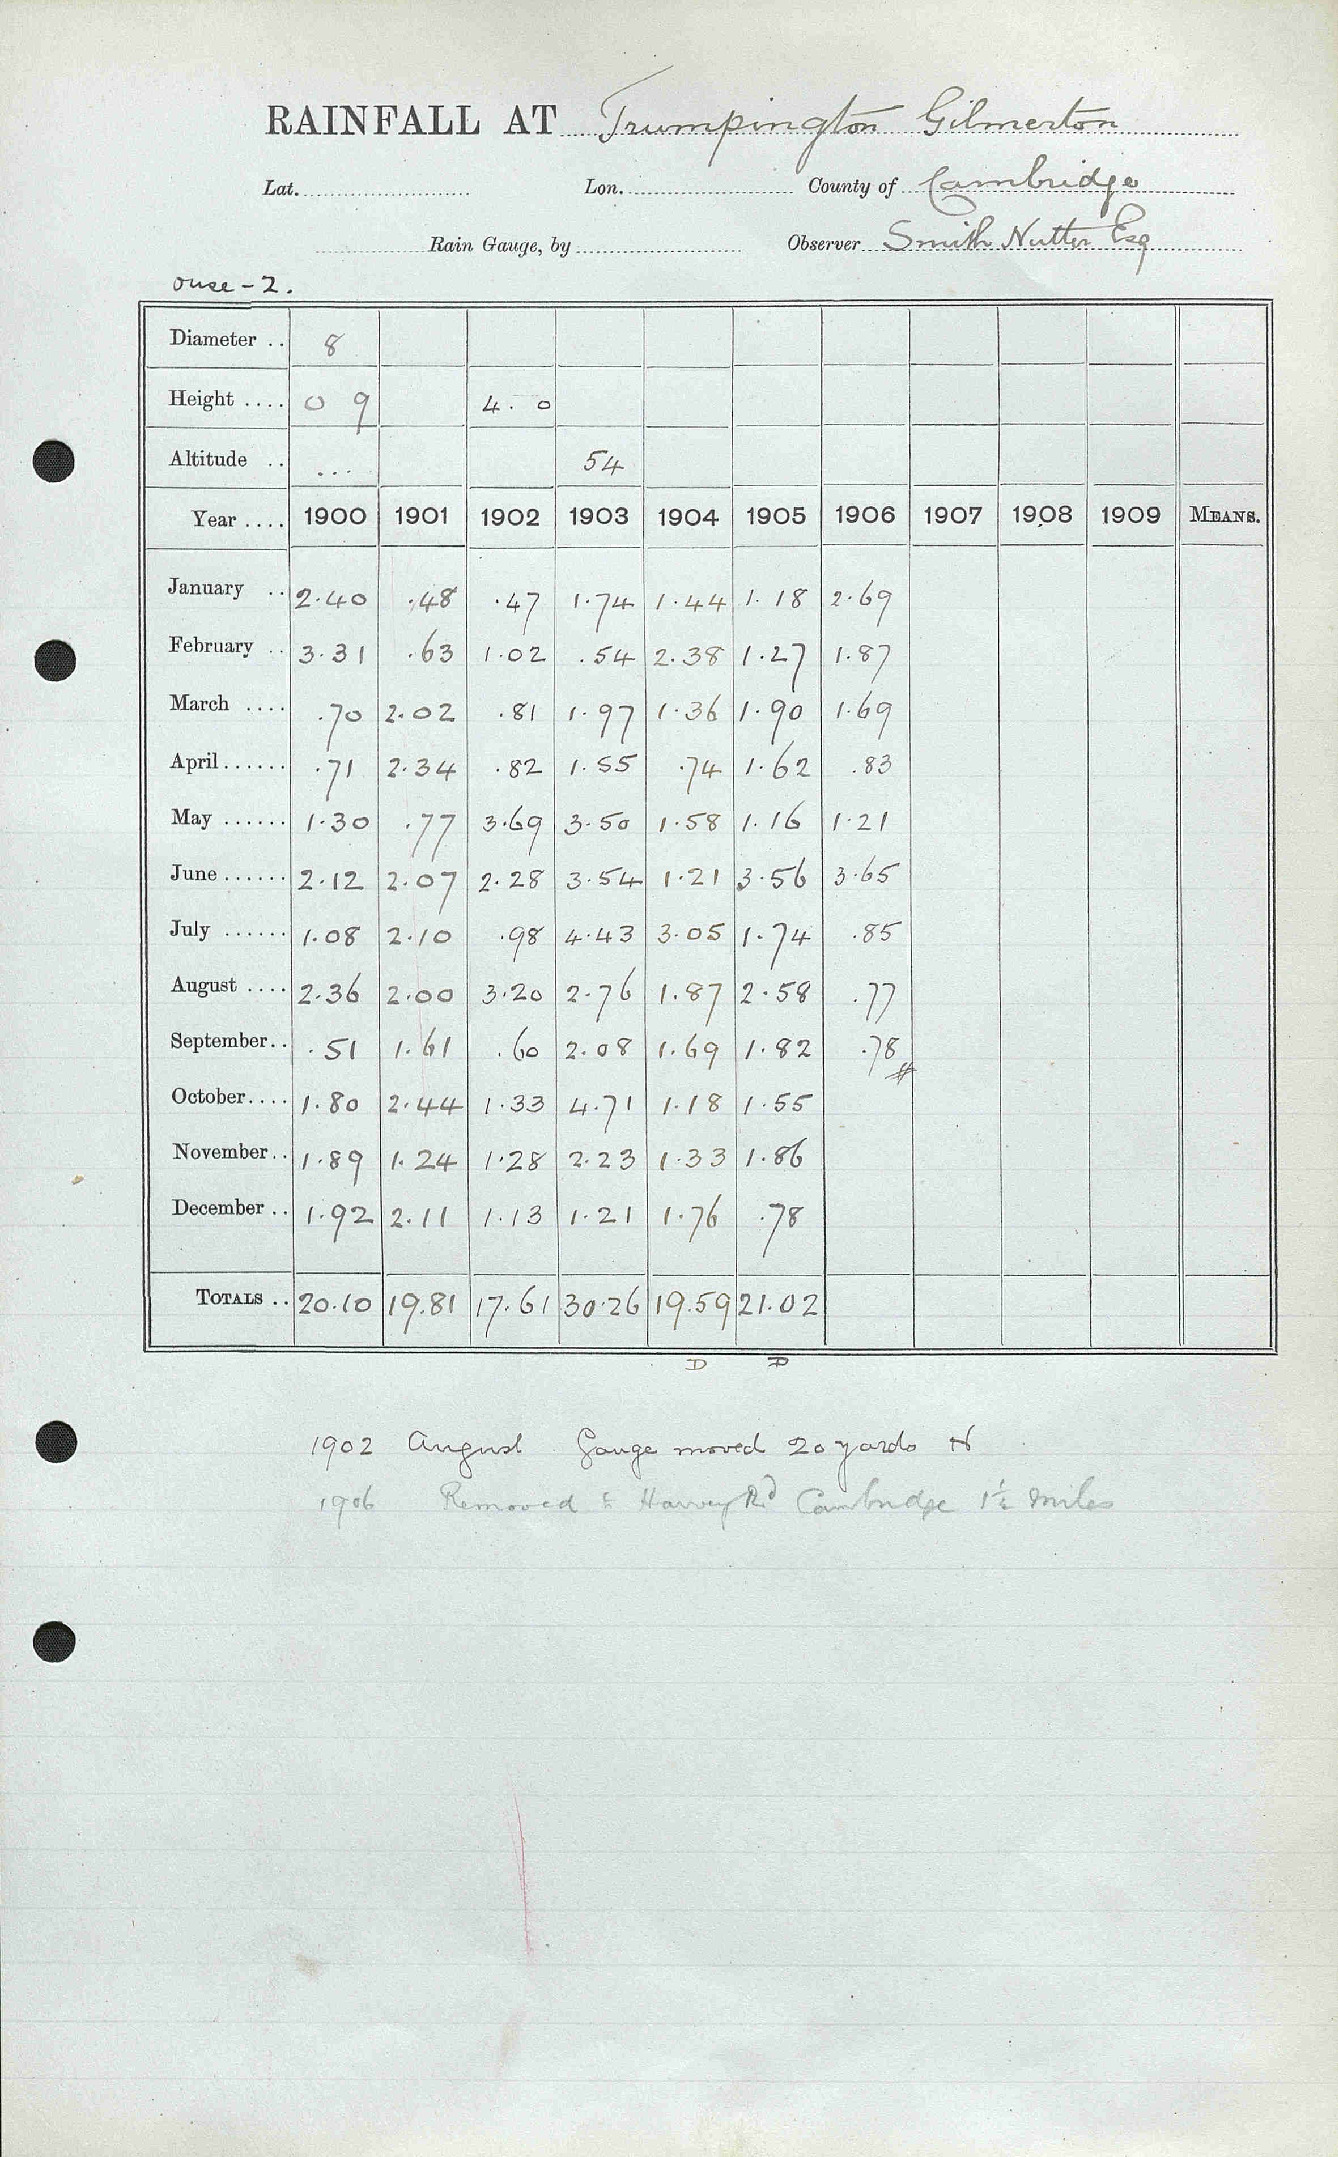 RAINFALL AT Trumpington Gilmerton
Lat. Lon. County of Cambridge
Rain Gauge, by Observer Smith Nutter Esq
Ouse - 2.
Diameter .. 8
Height .... 0 9 4. 0
Altitude .. ... 54
Year .... 1900 1901 1902 1903 1904 1905 1906 1907 1908 1909 MEANS.
January .. 2.40 .48 .47 1.74 1.44 1.18 2.69
February .. 3.31 .63 1.02 .54 2.38 1.27 1.87
March .... .70 2.02 .81 1.97 1.36 1.90 1.69
April...... .71 2.34 .82 1.55 .74 1.62 .83
May ...... 1.30 .77 3.69 3.50 1.58 1.16 1.21
June ...... 2.12 2.07 2.28 3.54 1.21 3.56 3.65
July ...... 1.08 2.10 .98 4.43 3.05 1.74 .85
August .... 2.36 2.00 3.20 2.76 1.87 2.58 .77
September.. .51 1.61 .60 2.08 1.69 1.82 .78 #
October.... 1.80 2.44 1.33 4.71 1.18 1.55
November.. 1.89 1.24 1.28 2.23 1.33 1.86
December .. 1.92 2.11 1.13 1.21 1.76 .78
TOTALS .. 20.10 19.81 17.61 30.26 19.59 21.02
D D
1902 August Gauge moved 20 yards N
1906 Removed to Harvey Rd Cambridge 1½ miles